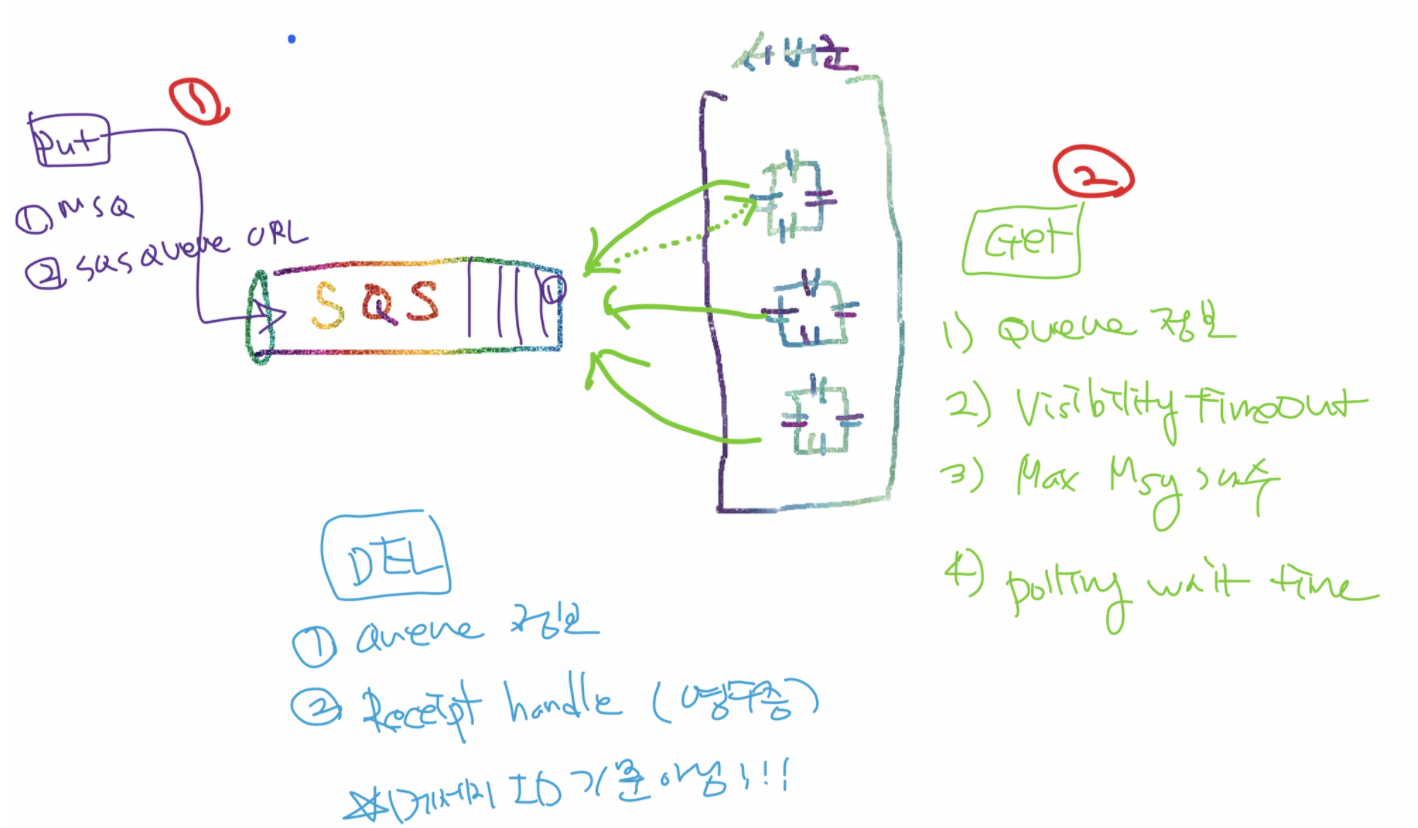 ①
put
① MSQ
② SQS Queue URL
SQS
①
서비스
②
Get
1) Queue 정보
2) Visibility Timeout
3) Max Msg 개수
4) polling wait time
DEL
① Queue 정보
② Receipt handle (영수증)
☆메세지 ID 기준 아님!!!